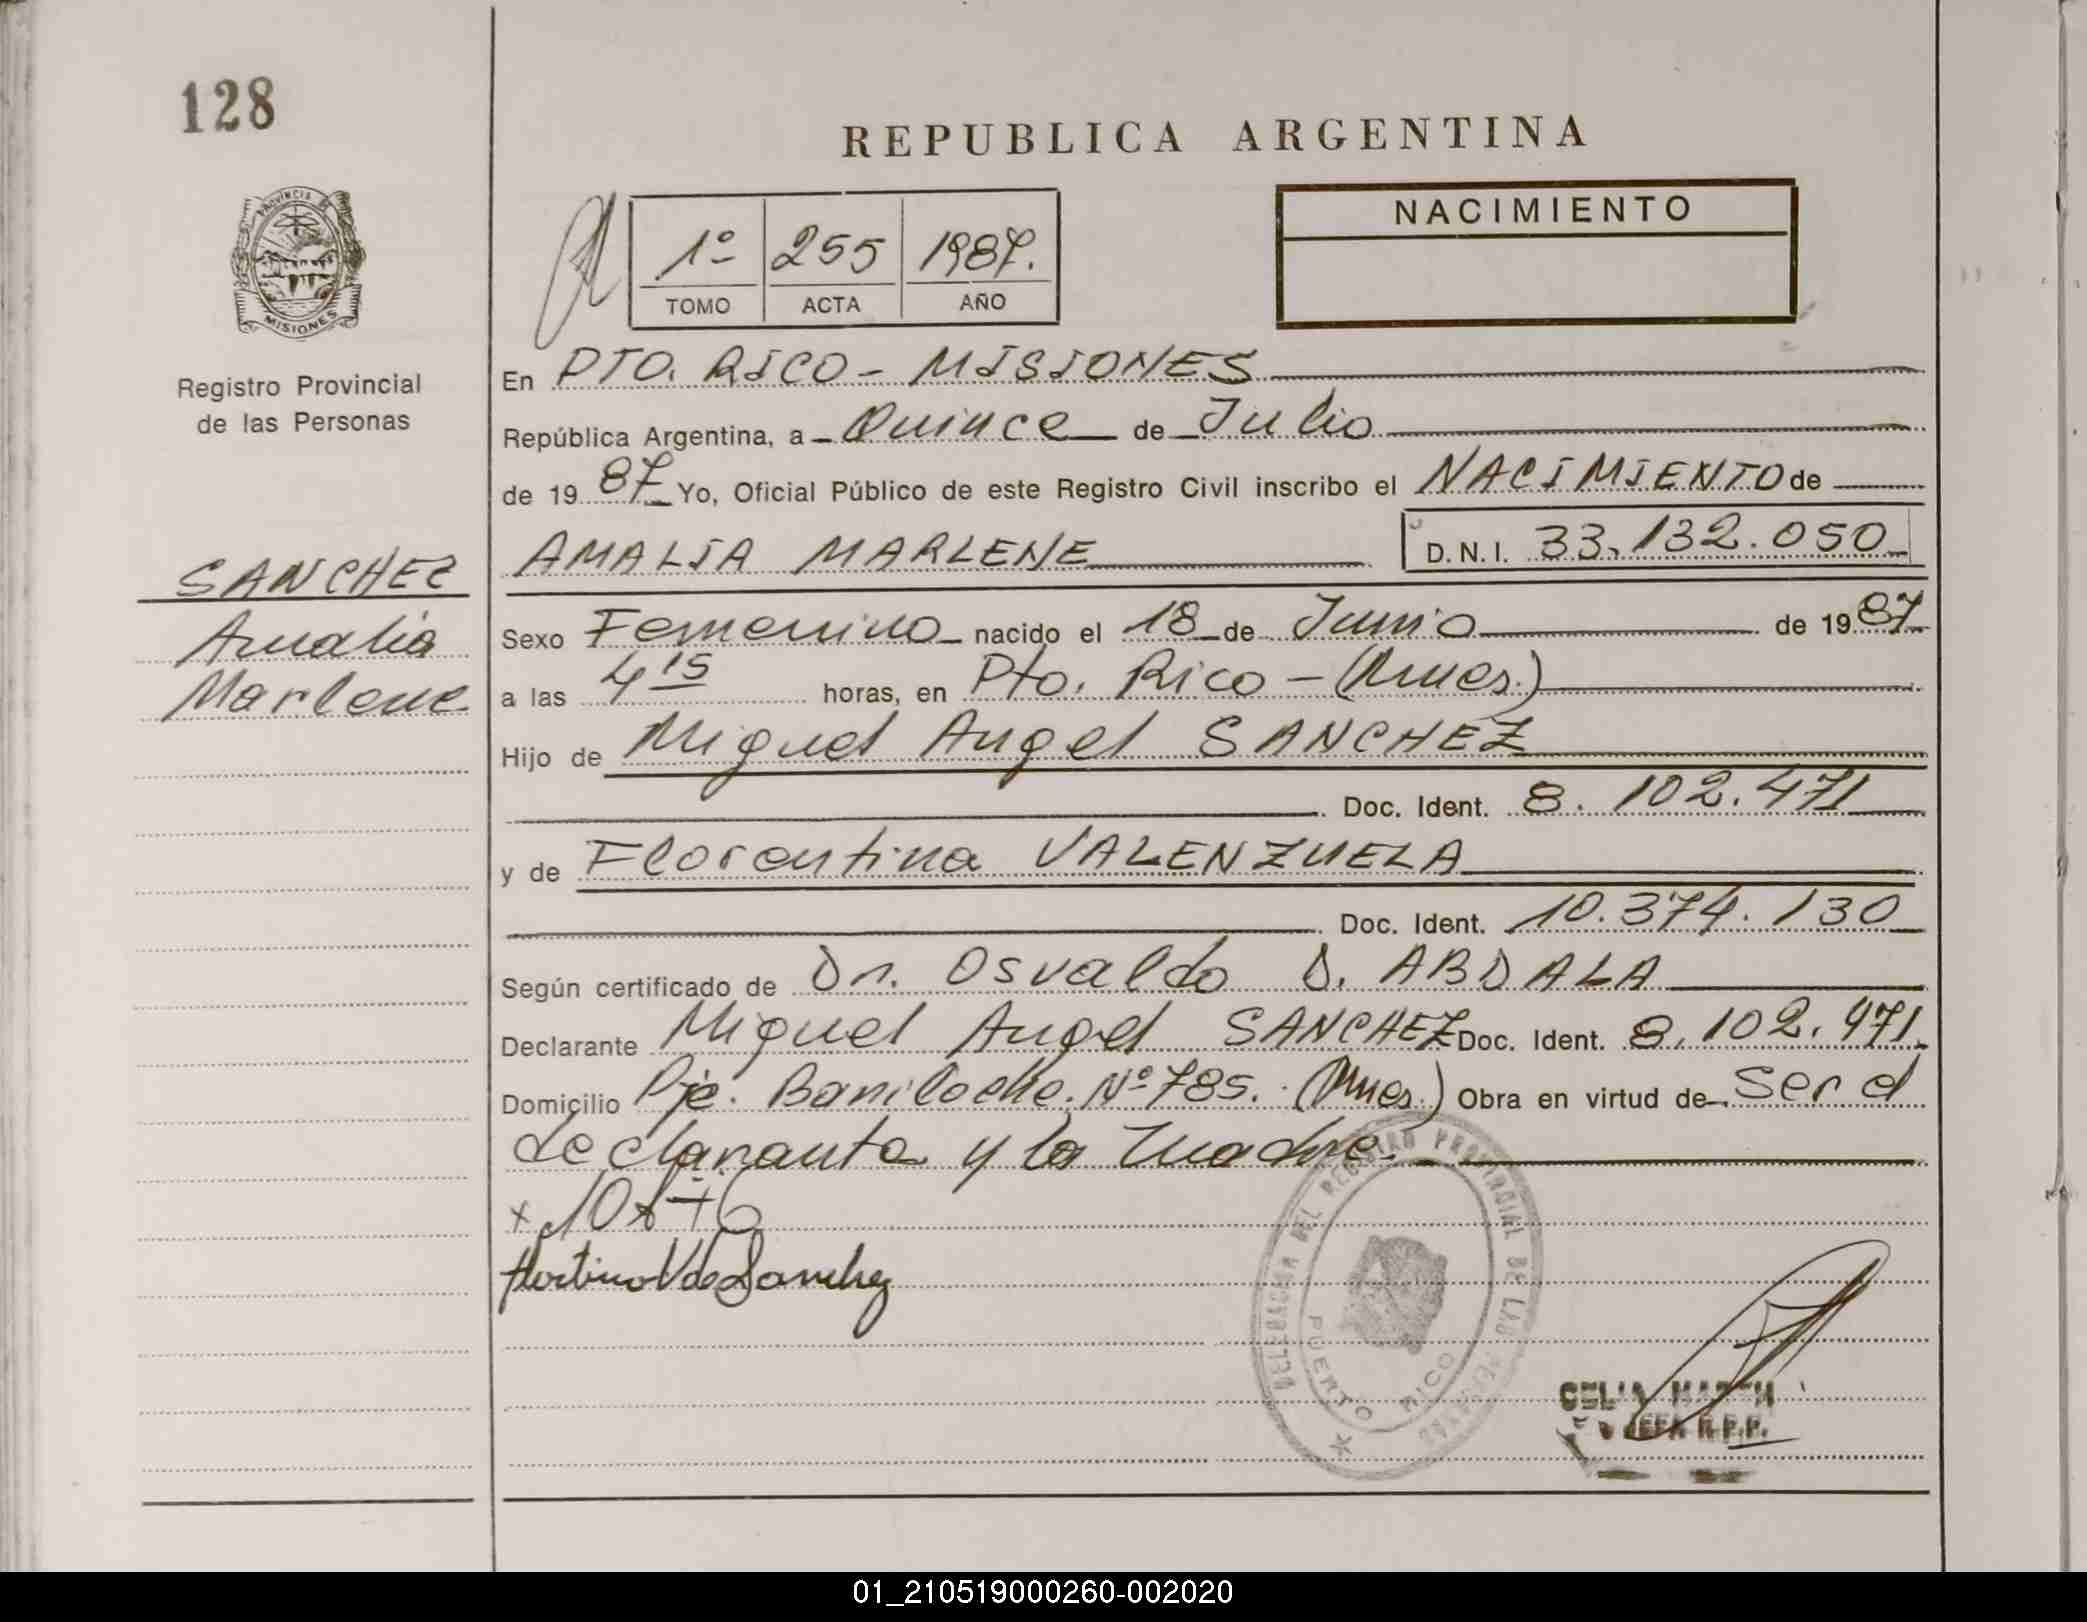 128
REPUBLICA ARGENTINA
PROVINCIA DE
MISIONES
Registro Provincial
de las Personas
1º 255 1987.
TOMO ACTA AÑO
NACIMIENTO
En PTO. RICO - MISIONES
República Argentina, a Quince de Julio
de 1987 Yo, Oficial Público de este Registro Civil inscribo el NACIMIENTO de
AMALIA MARLENE D.N.I. 33.132.050
SANCHEZ
Amalia
Marlene
Sexo Femenino nacido el 18 de Junio de 1987
a las 4 15 horas, en Pto. Rico - (Mnes.)
Hijo de Miguel Angel SANCHEZ
Doc. Ident. 8.102.471
y de Florentina VALENZUELA
Doc. Ident. 10.374.130
Según certificado de Dr. Osvaldo D. ABDALA
Declarante Miguel Angel SANCHEZ Doc. Ident. 8.102.471.
Domicilio Pje. Bariloche. Nº 785. (Mnes.) Obra en virtud de Ser el
declarante y la madre.
V de Sanchez
DELEGACION DEL REGISTRO PROVINCIAL DE LAS PERSONAS
PUERTO RICO
JEFA R.P.P.
01_210519000260-002020